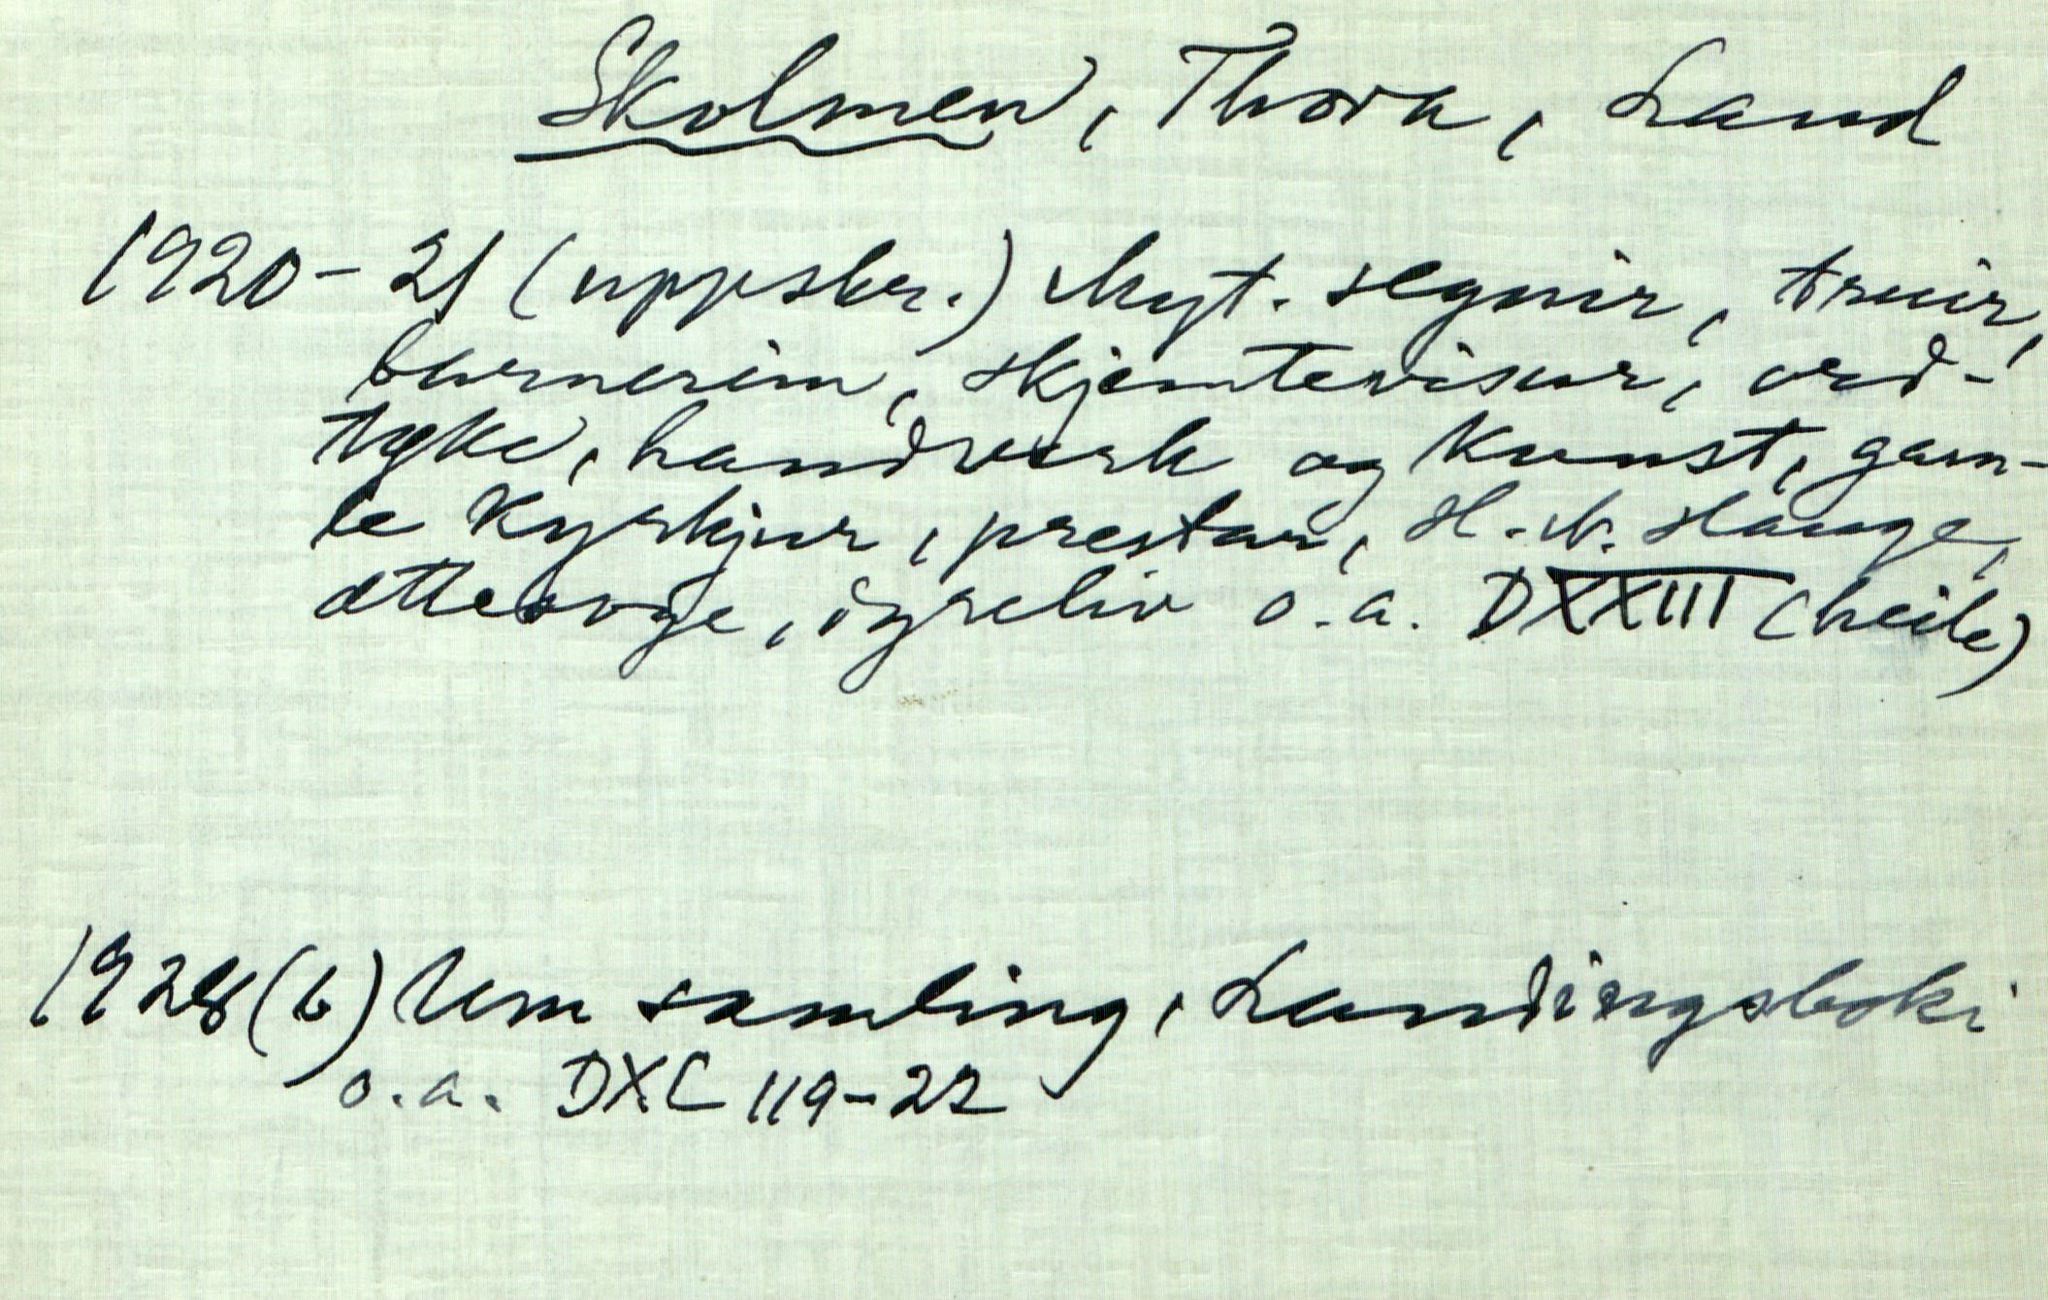 Skolmen, Thora, Land
1920-21 (uppskr.) Myt. segnir, truir,
barnerim, skjemtevisur, ord-
tøke, handverk og kunst, gam-
le kyrkjur, prestar, H. N. Hauge,
ættesoge, dyreliv o.a. DXXIII (heile)
1928 (b) Um samling, Landingsboki
o.a. DXC 119-22